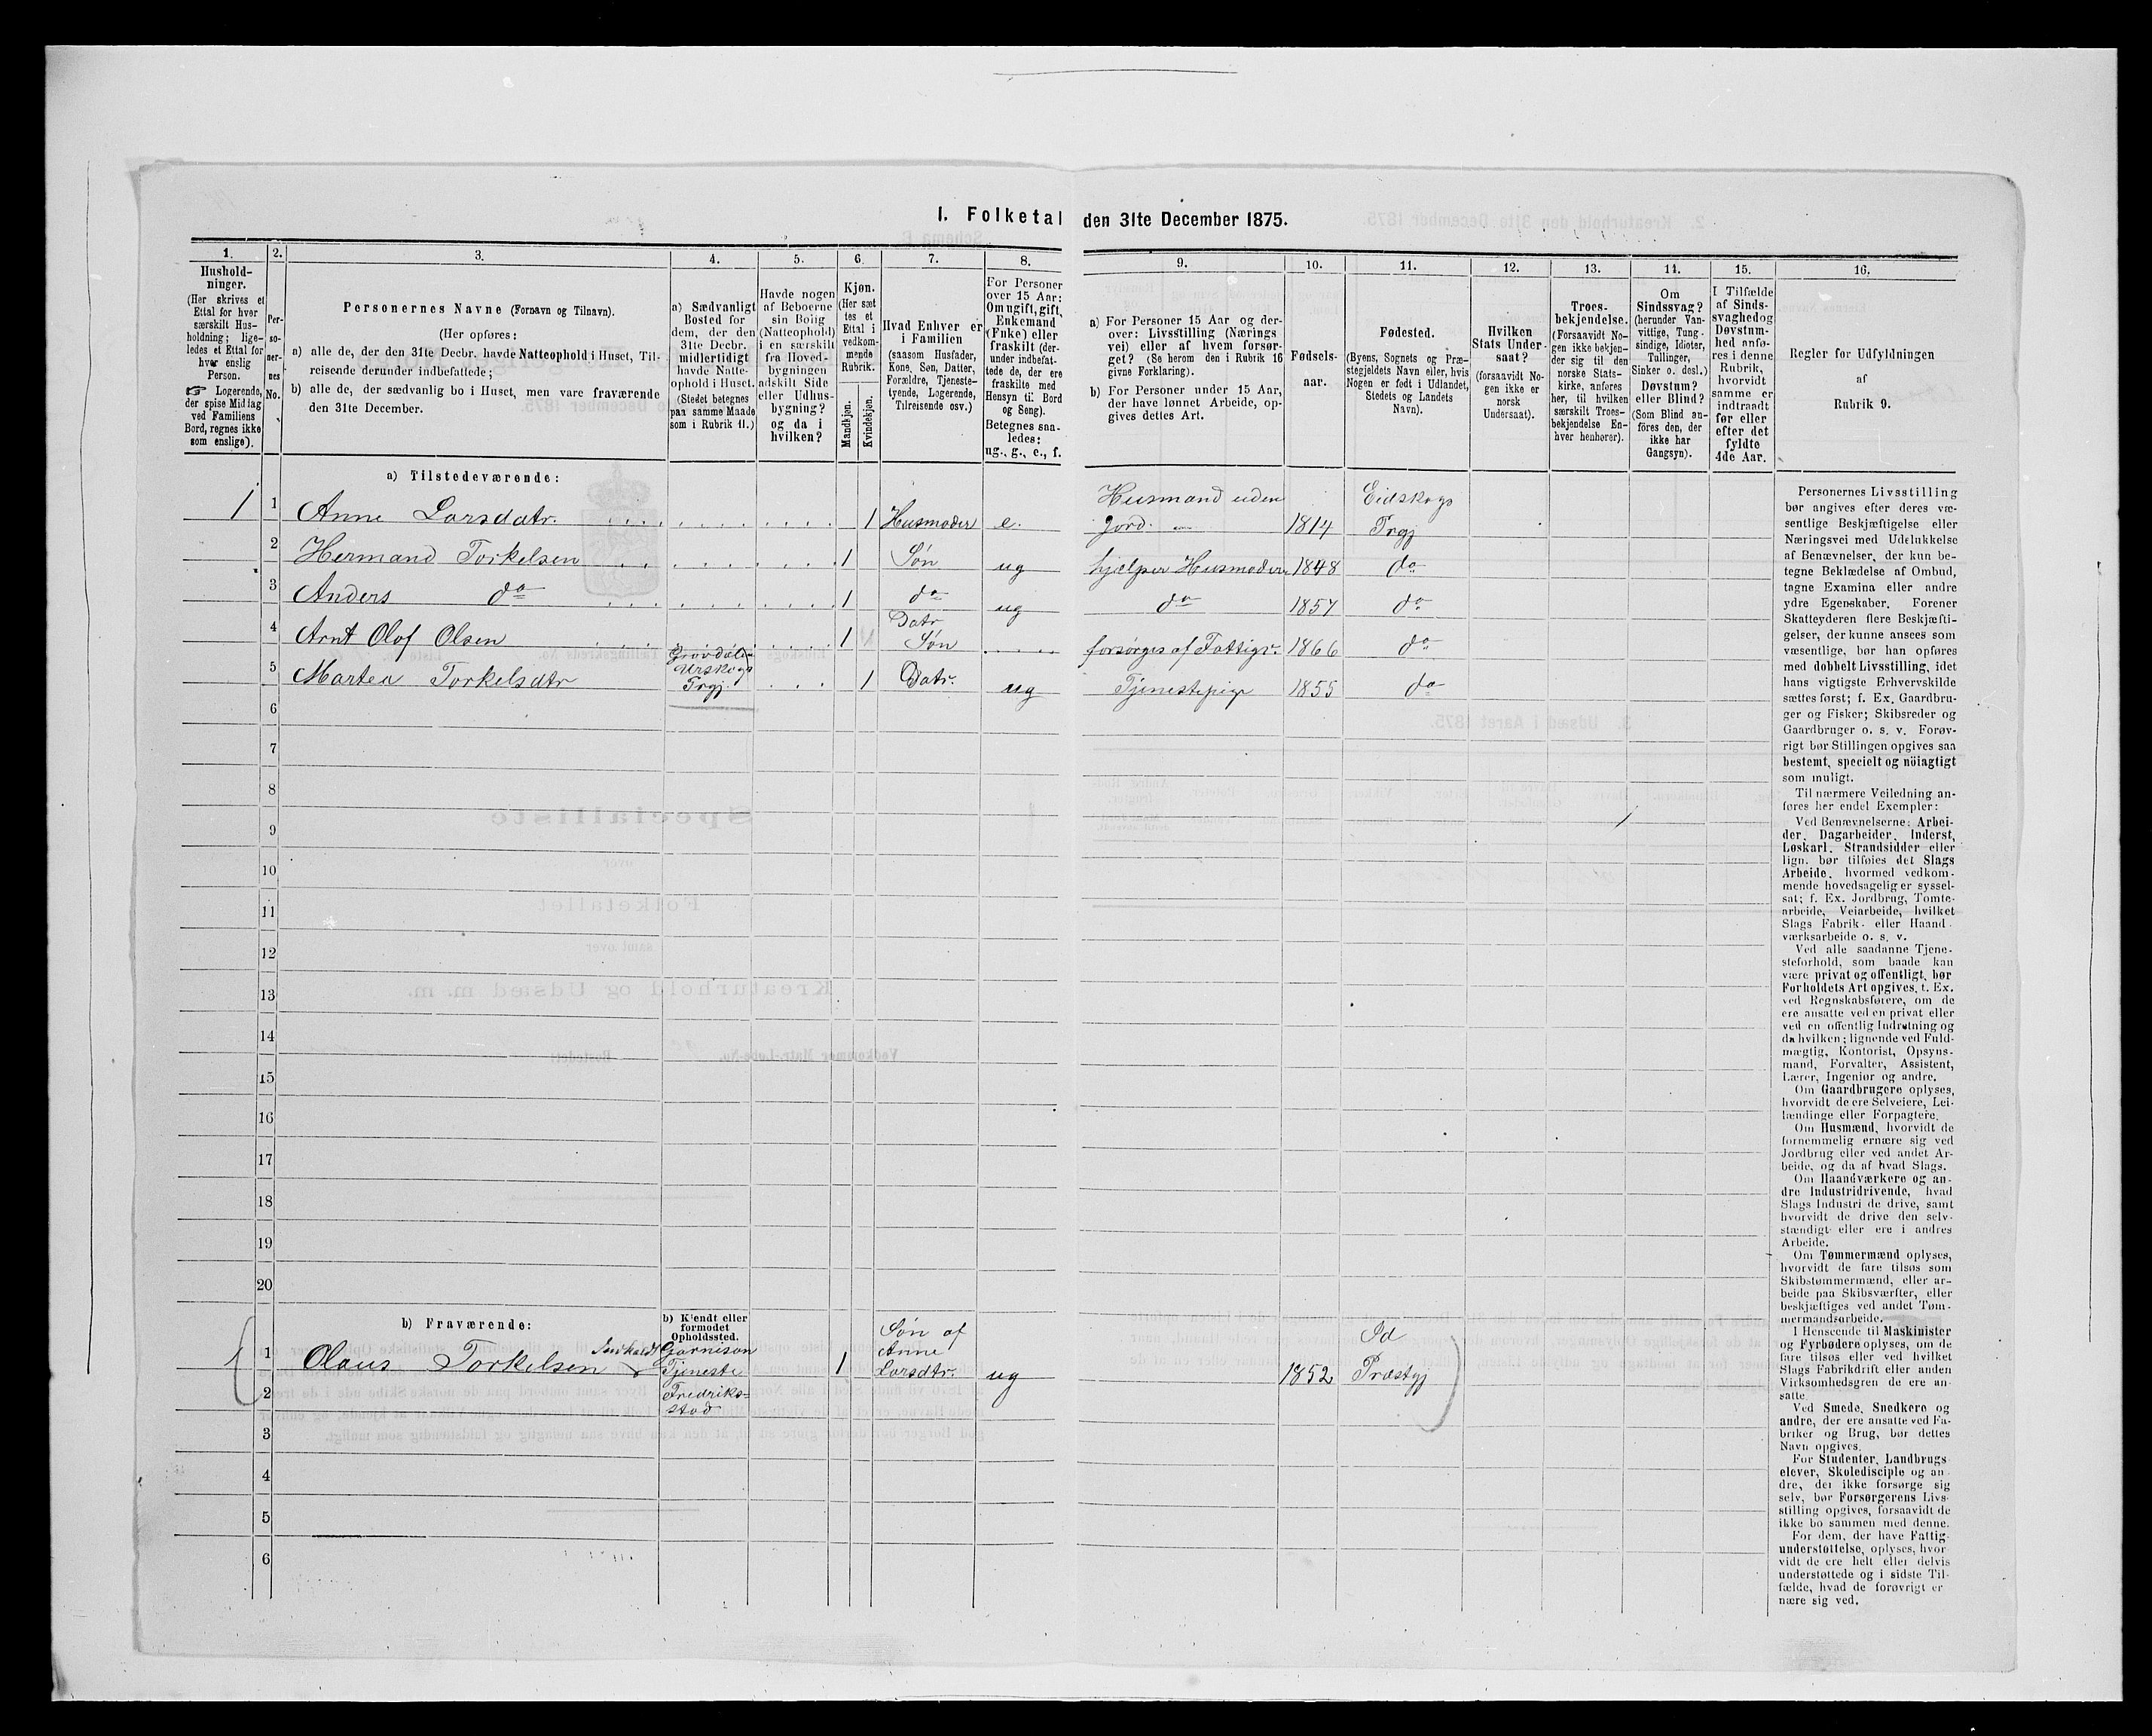 I. Folketal den 31te December 1875.
1. 2. 3. 4. 5. 6. 7. 8. 9. 10. 11. 12. 13. 14. 15. 16.
Hushold-
ninger.
(Her skrives et
Ettal for hver
særskilt Hus-
holdning; lige-
ledes et Ettal for
hver enslig
Person.
☞ Logerende,
der spise Middag
ved Familiens
Bord, regnes ikke
som enslige).
Per-
so-
ner-
nes
No.
Personernes Navne (Fornavn og Tilnavn).
(Her opføres:
a) alle de, der den 31te Decbr. havde Natteophold i Huset, Til-
reisende derunder indbefattede;
b) alle de, der sædvanlig bo i Huset, men vare fraværende
den 31te December.
a) Sædvanligt
Bosted for
dem, der den
31te Decbr.
midlertidigt
havde Natte-
ophold i Huset.
(Stedet betegnes
paa samme Maade
som i Rubrik 11.)
Havde nogen
af Beboerne
sin Bolig
(Natteophold)
i en særskilt
fra Hoved-
bygningen
adskilt Side
eller Udhus-
bygning?
og da i
hvilken?
Kjøn.
(Her sæt
tes et
Ettal i
vedkom-
mende
Rubrik.
Mandkjøn.
Kvindekjøn.
Hvad Enhver er
i Familien
(saasom Husfader,
Kone, Søn, Datter,
Forældre, Tjeneste-
tyende, Logerende,
Tilreisende osv.)
For Personer
over 15 Aar:
Om ugift, gift,
Enkemand
(Enke) eller
fraskilt (der-
under indbefat-
tede de, der ere
fraskilte med
Hensyn til Bord
og Seng).
Betegnes saa-
ledes:
ug., g., e., f.
a) For Personer 15 Aar og der-
over: Livsstilling (Nærings
vei) eller af hvem forsør-
get? (Se herom den i Rubrik 16
givne Forklaring).
b) For Personer under 15 Aar,
der have lønnet Arbeide, op-
gives dettes Art.
Fødsels-
aar.
Fødested.
(Byens, Sognets og Præ-
stegjeldets Navn eller, hvis
Nogen er født i Udlandet,
Stedets og Landets
Navn).
Hvilken
Stats Under-
saat?
(forsaavidt No-
gen ikke er
norsk
Undersaat).
Troes-
bekjendelse.
(Forsaavidt No-
gen ikke bekjen-
der sig til den
norske Stats-
kirke, anføres
her, til hvilken
særskilt Troes-
bekjendelse En-
hver henhører).
Om
Sindssvag?
(herunder Van-
vittige, Tung-
sindige, Idioter,
Tullinger,
Sinker o. desl.)
Døvstum?
eller Blind?
(Som Blind an-
føres den, der
ikke har
Gangsyn).
I Tilfælde
af Sinds-
svaghed og
Døvstum-
hed anfø-
res i denne
Rubrik,
hvorvidt
samme er
indtraadt
før eller
efter det
fyldte
4de Aar.
Regler for Udfyldningen
af
Rubrik 9.
a) Tilstedeværende:
Husmand uden Eidskogs
1 1 Anne Larsdatr. 1 Husmoder e. Jord. 1814 Prgj
2 Hermand Torkelsen 1 Søn ug hjelper Husmoder 1848 do
3 Anders do 1 do ug do 1857 do
Datr
4 Arnt Olof Olsen 1 Søn forsørges af Fattigv. 1866 do
Urskogs
5 Marten Torkelsdtr Prgj. 1 Datr. ug Tjenestepige 1855 do
6
7
8
9
10
11
12
13
14
15
16
17
18
19
20
b) Fraværende:
b) Kjendt eller
formodet
Opholdssted.
Søn af Id
1 Garnison Anne
1 Olaus Torkelsen Tjeneste 1 Larsdtr. ug 1852 Præstgj
2 Fredriks-
stad
3
4
5
6
Personernes Livsstilling
bør angives efter deres væ-
sentlige Beskjæftigelse eller
Næringsvei med Udelukkelse
af Benævnelser, der kun be-
tegne Beklædelse af Ombud,
tagne Examina eller andre
ydre Egenskaber. Forener
Skatteyderen flere Beskjæfti-
gelser, der kunne ansees som
væsentlige, bør han opføres
med dobbelt Livsstilling, idet
hans vigtigste Erhvervskilde
sættes først; f. Ex. Gaardbru-
ger og Fisker; Skibsreder og
Gaardbruger o. s. v. Forøv-
rigt bør Stillingen opgives saa
bestemt, specielt og nöiagtigt
som muligt.
Til nærmere Veiledning an-
føres her endel Exempler:
Ved Benævnelserne: Arbei-
der, Dagarbeider, Inderst,
Løskarl, Strandsidder eller
lign. bør tilføies det Slags
Arbeide, hvormed vedkom-
mende hovedsagelig er syssel-
sat; f. Ex. Jordbrug, Tomte-
arbeide, Veiarbeide, hvilket
Slags Fabrik- eller Haand-
værksarbeide o. s. v.
Ved alle saadanne Tjene-
steforhold, som baade kan
være privat og offentligt, bør
Forholdets Art opgives, t. Ex.
ved Regnskabsførere, om de
ere ansatte ved en privat eller
ved en offentlig Indretning og
da hvilken; lignende ved Fuld-
mægtig, Kontorist, Opsyns-
mand, Forvalter, Assistent,
Lærer, Ingeniør og andre.
Om Gaardbrugere oplyses,
hvorvidt de ere Selveiere, Lei-
lændinge eller Forpagtere.
Om Husmænd, hvorvidt de
fornemmelig ernære sig ved
Jordbrug eller ved andet Ar-
beide, og da af hvad Slags.
Om Haandværkere og an-
dre Industridrivende, hvad
Slags Industri de drive, samt
hvorvidt de drive den selv-
stændigt eller ere i andres
Arbeide.
Om Tømmermænd oplyses,
hvorvidt de fare tilsøs som
Skibstømmermænd, eller ar-
beide paa Skibsværfter, eller
beskjæftiges ved andet Tøm-
mermandsarbeide.
I Henseende til Maskinister
og Fyrbødere oplyses, om de
fare tilsøs eller ved hvilket
Slags Fabrikdrift eller anden
Virksomhedsgren de ere an-
satte.
Ved Smede, Snedkere og
andre, der ere ansatte ved Fa-
briker og Brug, bør dettes
Navn opgives.
For Studenter, Landbrugs-
elever, Skoledisciple og an-
dre, der ikke forsørge sig
selv, bør Forsørgerens Livs-
stilling opgives, forsaavidt de
ikke bo sammen med denne.
For dem, der have Fattig-
understøttelse, oplyses, hvor-
vidt de ere helt eller delvis
understøttede og i sidste Til-
fælde, hvad de forøvrigt er-
nære sig ved.